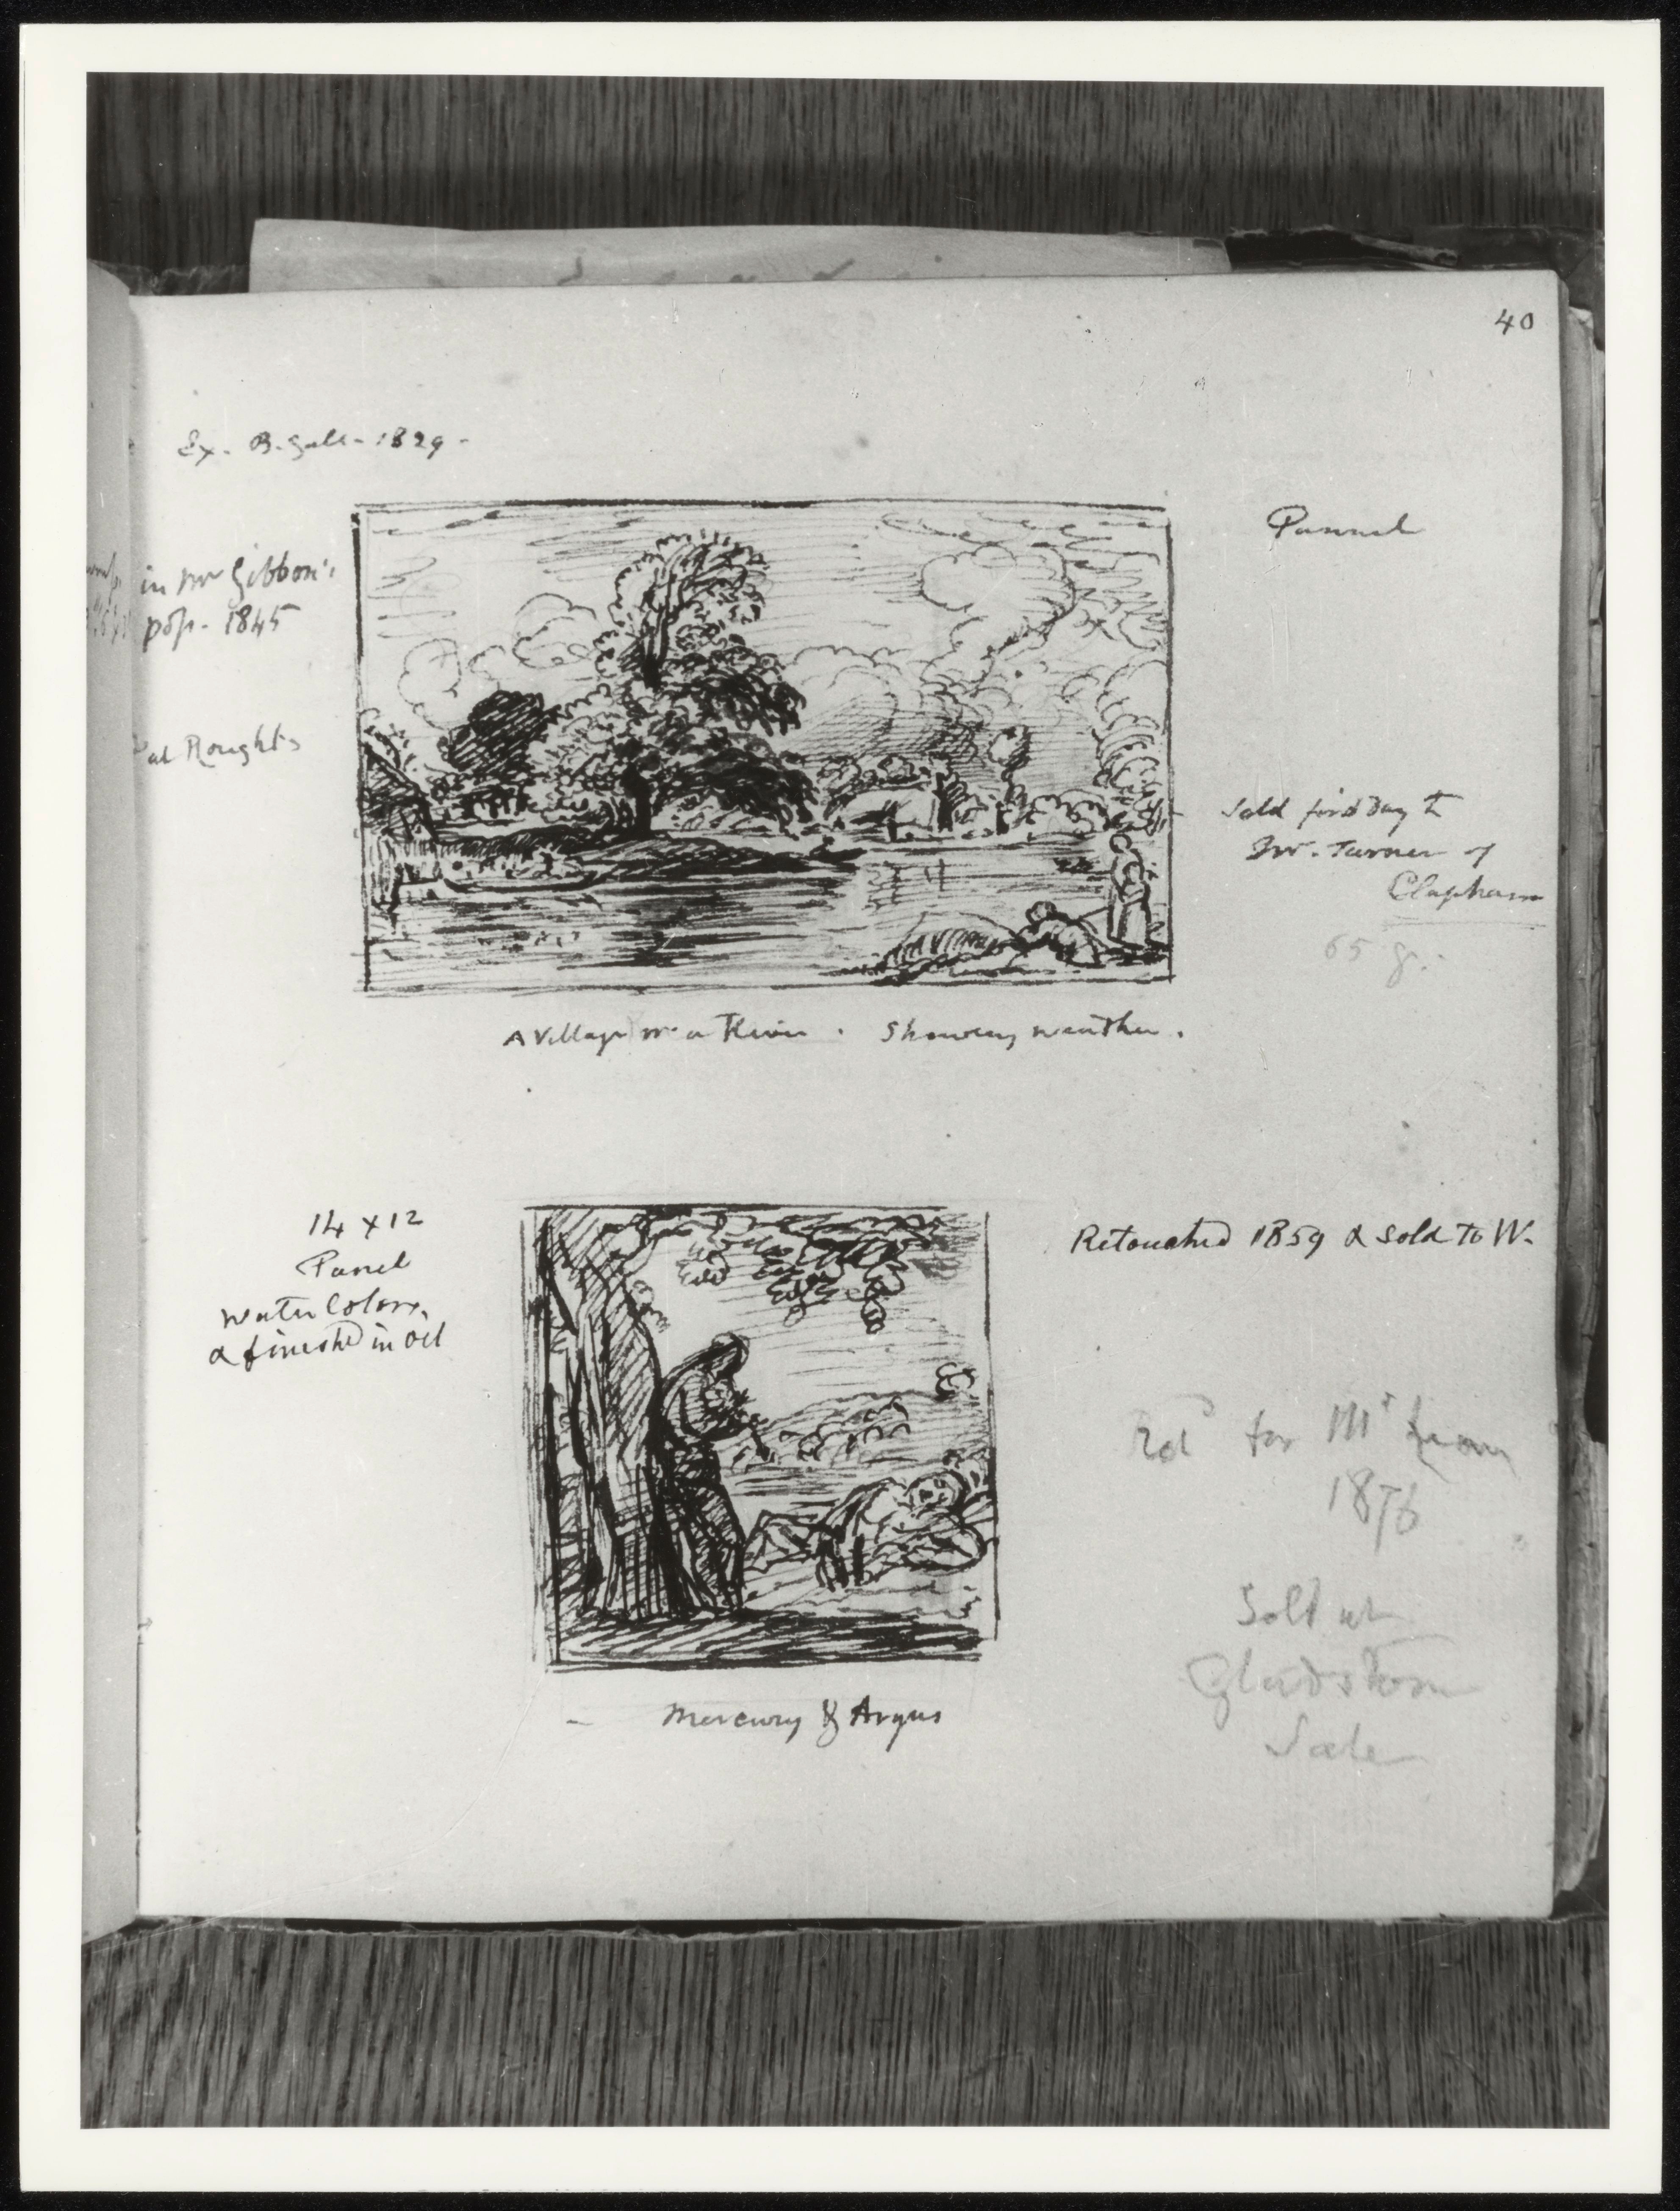 40
Ex. B. Gall - 1829 -
in Mr Gibbon's
pos. - 1845
at Roughts
Pannel
Sold first Day to
Mr. Turner of
Clapham
65 g.
A Village on a River . Showery weather .
14 x 12
Panel
Water Colors,
& finished in oil
Retouched 1859 & sold to W.
for Mr
1876
Sold at
Gladstone
Sale
- Mercury & Argus